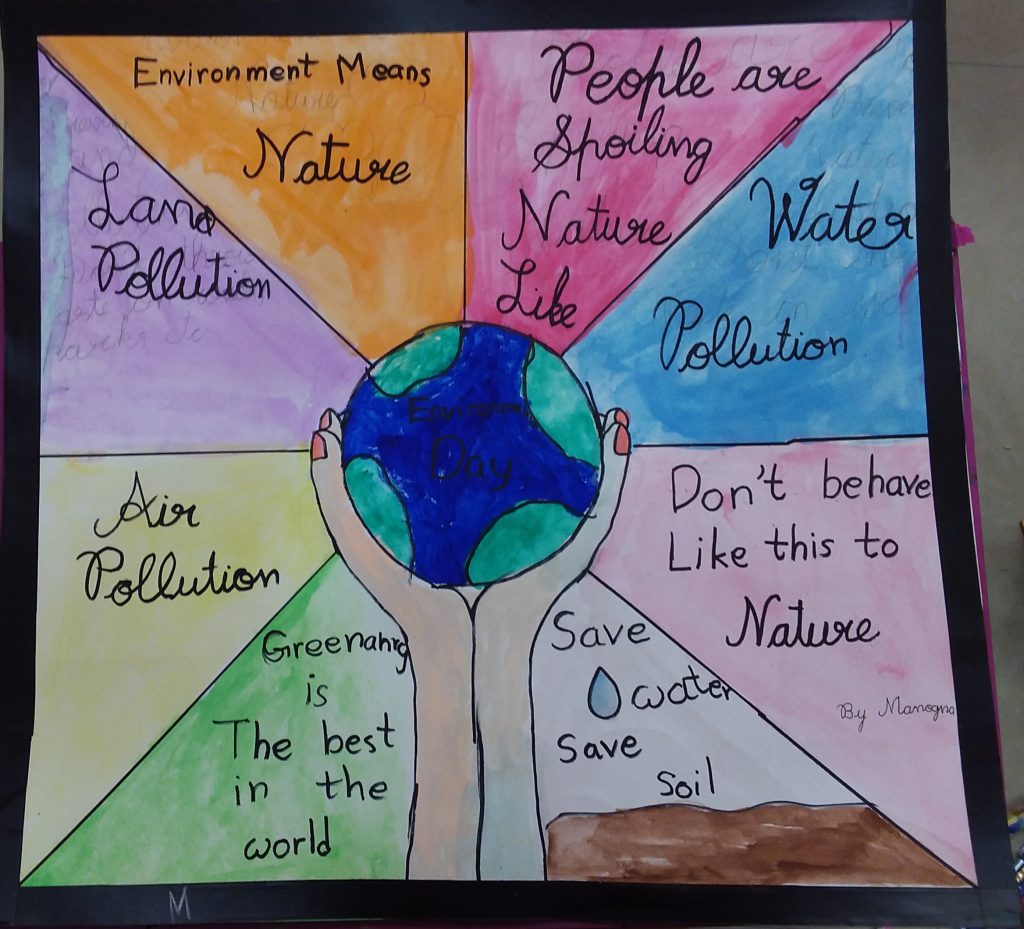 Environment Means
Nature
People are
Spoiling
Nature
Like
Water
Pollution
Land
Pollution
Air
Pollution
Environment
Day
Don't behave
Like this to
Nature
By Manogna
Greenahrg
is
The best
in the
world
Save
water
Save
Soil
M